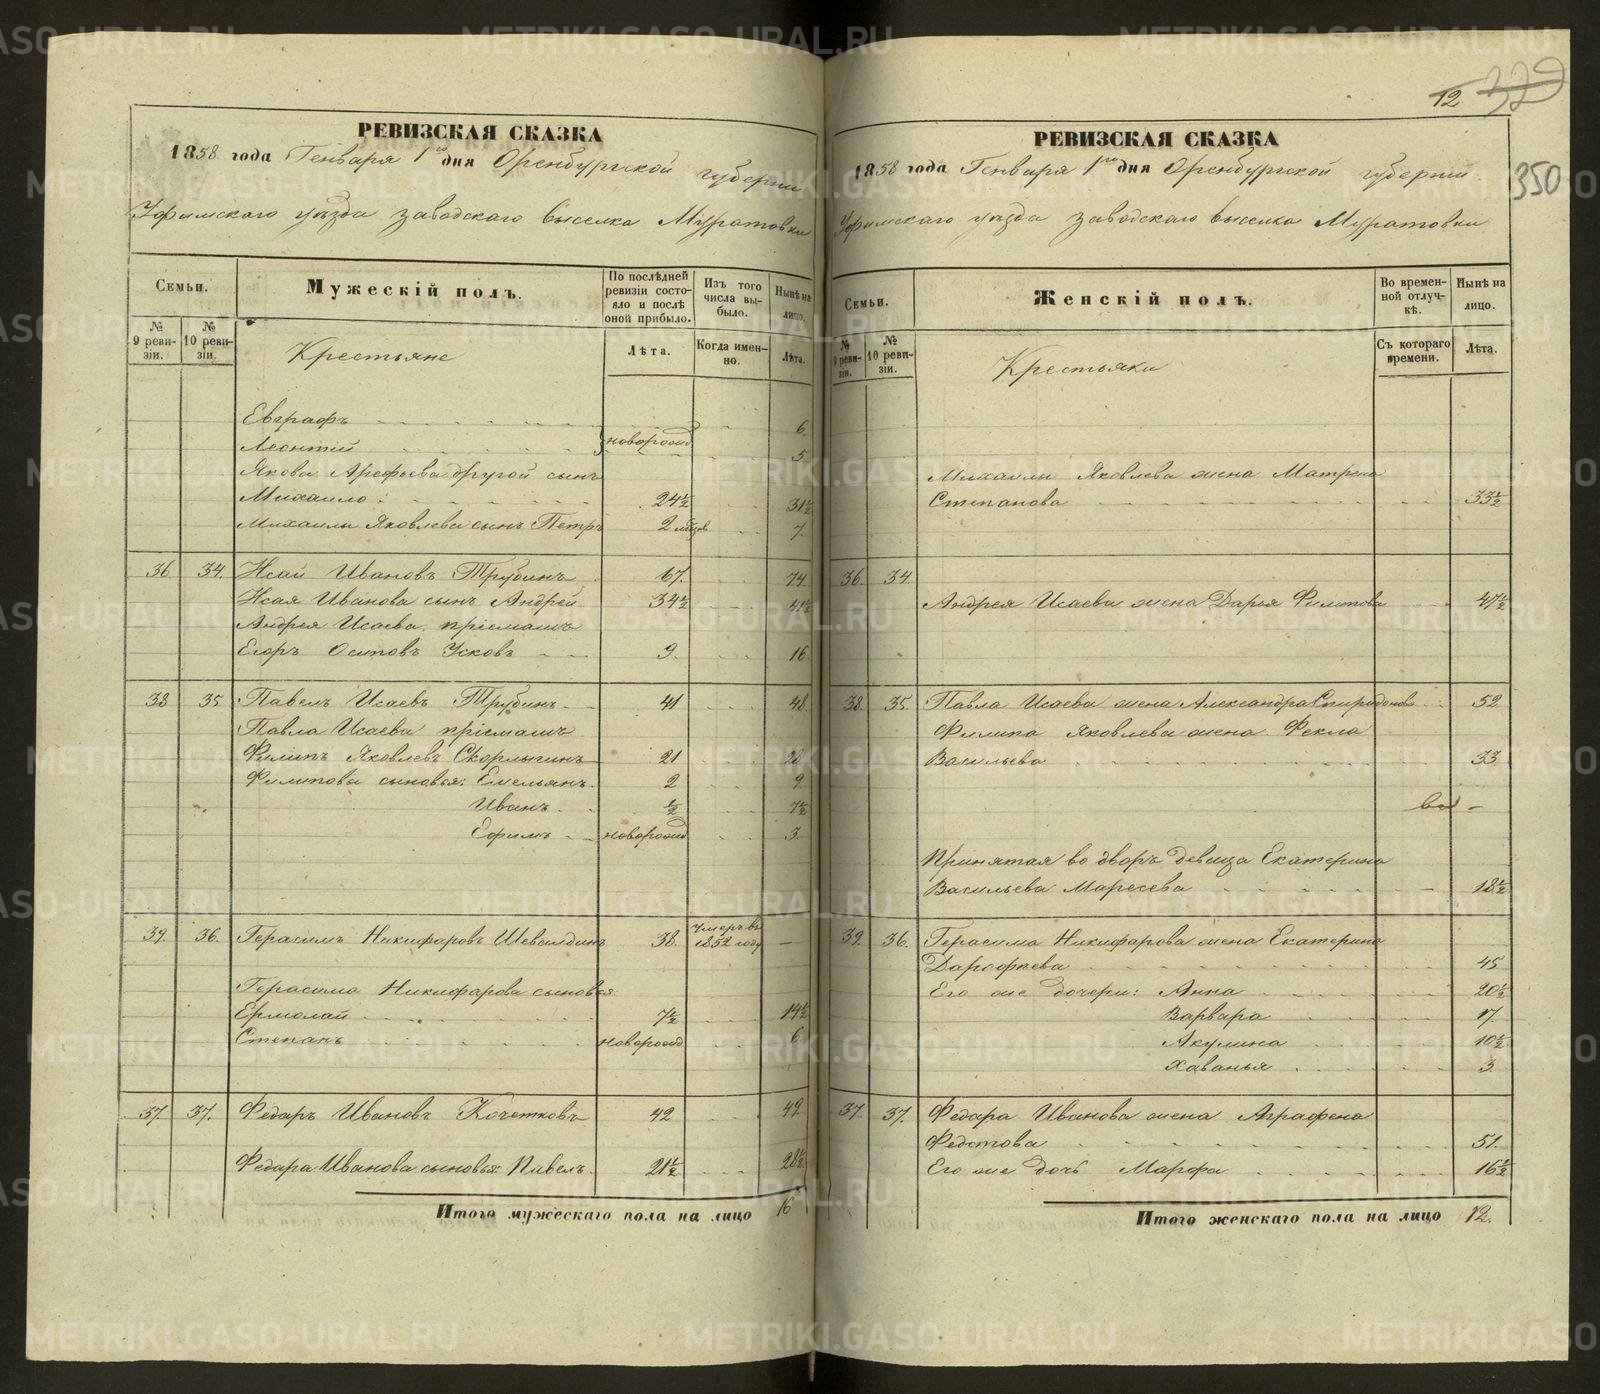 РЕВИЗСКАЯ СКАЗКА
1858 года Генваря 1го дня Оренбургской губернии
Уфимскаго уѣзда заводскаго выселка Муратовки
Семьи.
Мужескій полъ.
По послѣдней ревизіи состояло и послѣ оной прибыло.
Изъ того числа выбыло.
Нынѣ на лицо.
№ 9 ревизіи.
№ 10 ревизіи.
Лѣта.
Когда именно.
Лѣта.
Крестьяне
Евграфъ 6.
Леонтій новорожд 5
Якова Арефьева другой сынъ
Михаило: 24½ 31½
Михаилы Яковлева сынъ Петръ 2 мѣсяцов 7
36 34. Исай Ивановъ Трубинъ 67. 74
Исая Иванова сынъ Андрей 34½ 41½
Андрея Исаева пріемышъ
Егоръ Осиповъ Усковъ 9. 16
38 35 Павелъ Исаевъ Трубинъ 41 48
Павла Исаева пріемышъ
Филипъ Яковлевъ Скорлыгинъ 21 28
Филипова сыновья: Емельянъ 2 9
Иванъ ½ 7½
Ефимъ новорожд 3.
39. 36. Герасимъ Никифоровъ Шевалдинъ 38. Умеръ въ 1852 году —
Герасима Никифорова сыновья:
Ермолай 7½ 14½
Степанъ новорожд 6
37. 37. Федоръ Ивановъ Кочетковъ 42 49
Федора Иванова сыновья: Павелъ 21½ 28½
Итого мужескаго пола на лицо 16
12 329
350
РЕВИЗСКАЯ СКАЗКА
1858 года Генваря 1го дня Оренбургской губернии
Уфимскаго уѣзда заводскаго выселка Муратовки
Семьи.
Женскій полъ.
Во временной отлучкѣ.
Нынѣ на лицо.
№ 9 ревизіи.
№ 10 ревизіи.
Съ котораго времени.
Лѣта.
Крестьянки
Михаилы Яковлева жена Матрена
Степанова 33½
36. 34.
Андрея Исаева жена Дарья Филипова 47½
38. 35. Павла Исаева жена Александра Спиридонова 52
Филипа Яковлева жена Фекла
Васильева 33
Принятая во дворъ девица Екатерина
Васильева Маресева 18½
39. 36. Герасима Никифорова жена Екатерина
Дарофѣева 45
Его же дочери: Анна 20½
Варвара 17.
Акулина 10½
Хаванья 3
37. 37. Федора Иванова жена Аграфена
Федотова 51.
Его же дочь Марфа 16½
Итого женскаго пола на лицо 12.
METRIKI.GASO-URAL.RU